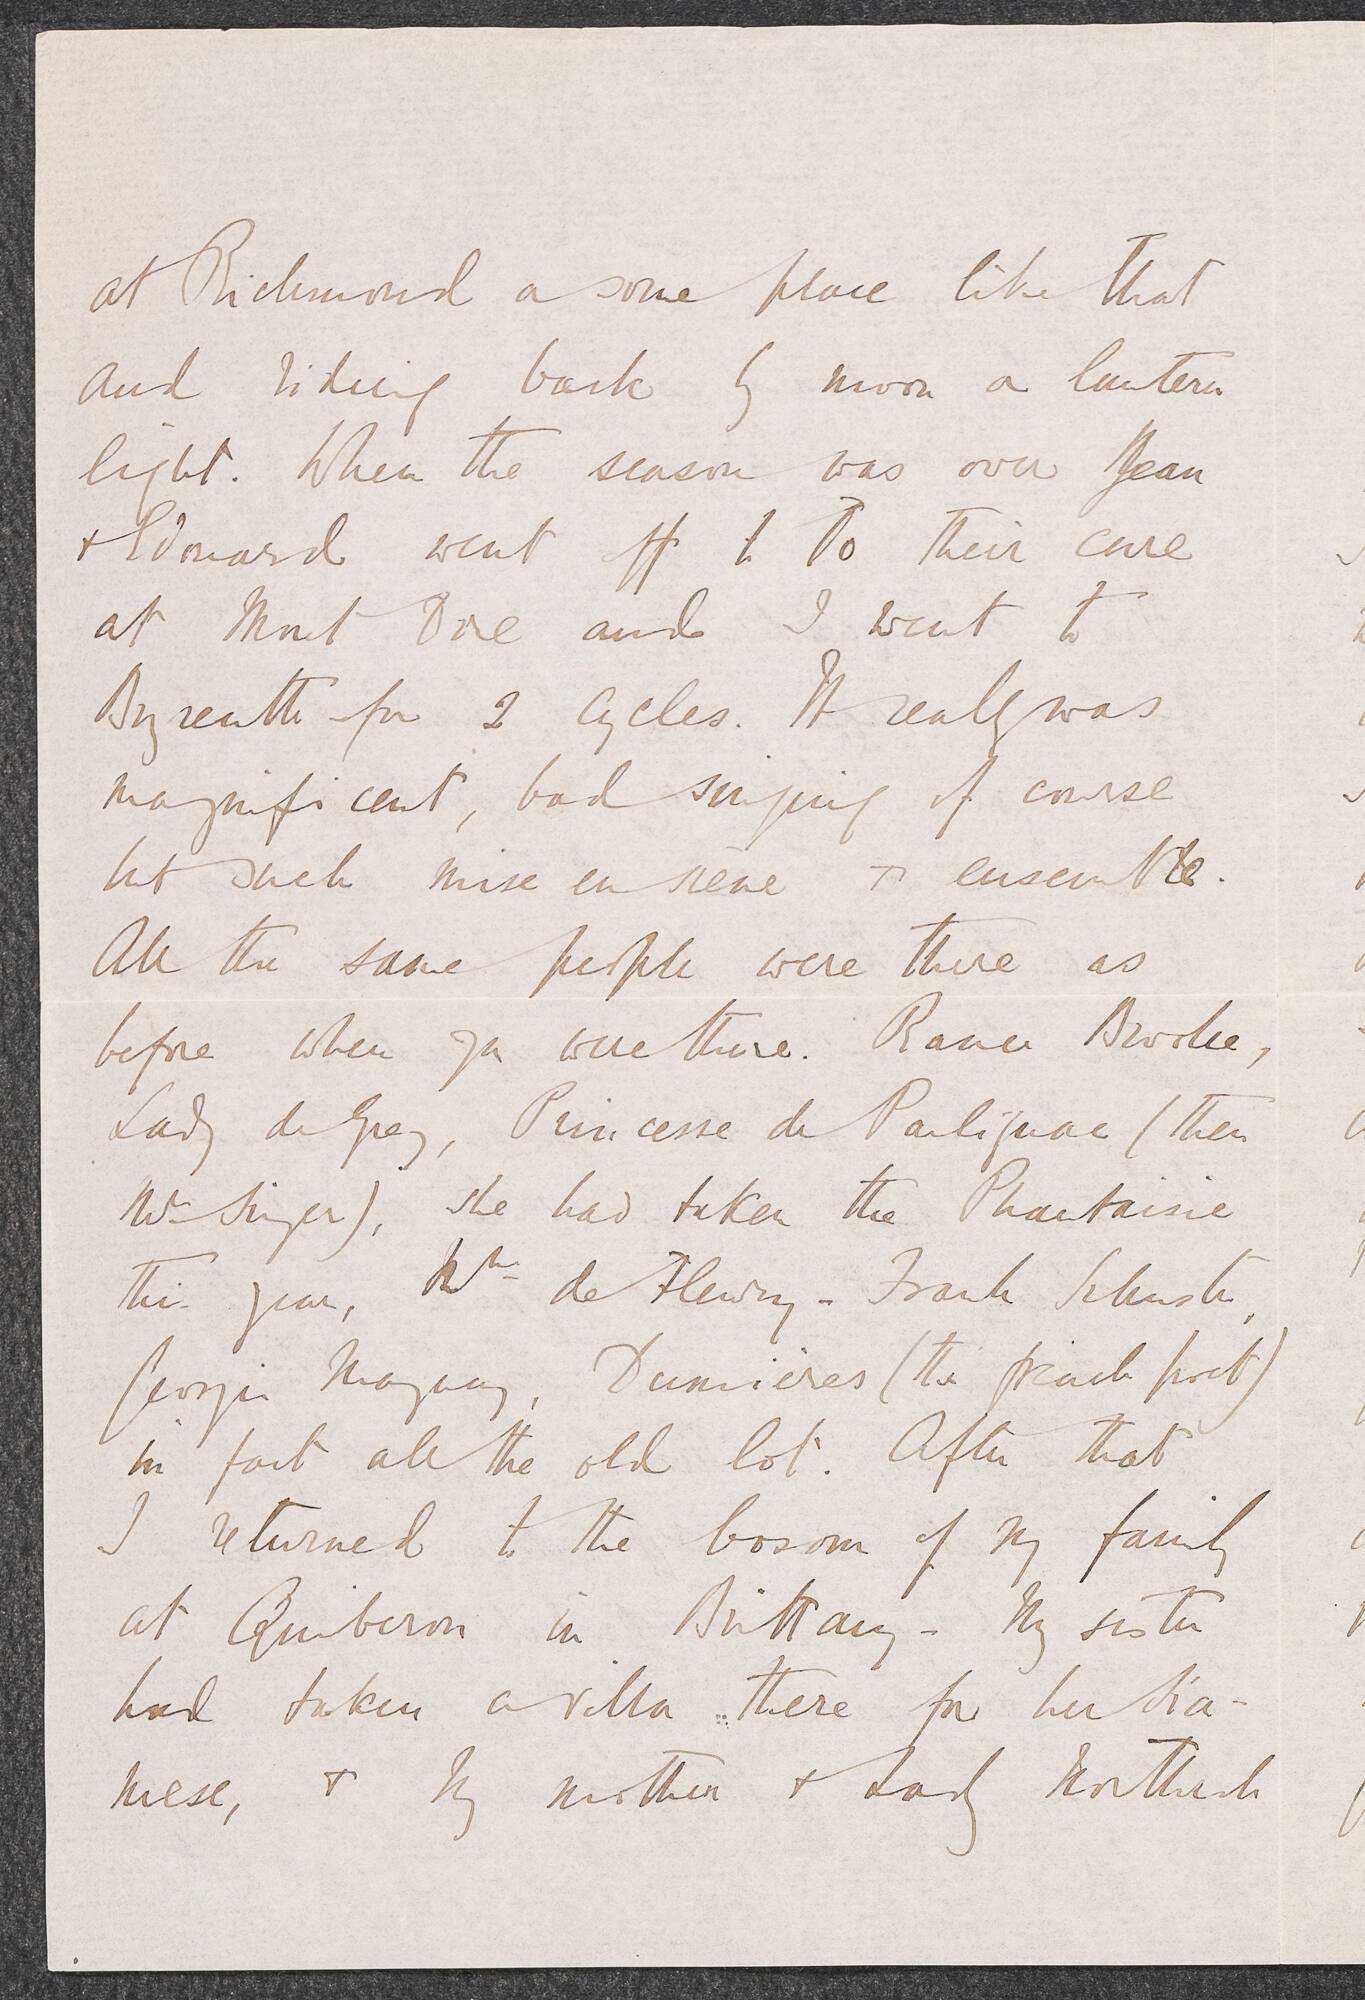 at Richmond or some place like that
and riding back by moon or lantern
light. When the season was over Jean
+ Edouard went off to do their cure
at Mont Dore and I went to
Byreuth for 2 Cycles. It really was
magnificent, bad singing of course
but such mise en scene + ensemble.
All the same people were there as
before when you were there. Ranee Brooke,
Lady de Grey, Princesse de Paulignac (then
Mrs Singer), she had taken the Phantaisie
this year, Mme de Fleury - Frank Schuster,
Georgie Maquay, Dumières (the french poet)
in fact all the old lot. After that
I returned to the bosom of my family
at Quiberon in Brittany - My sister
had taken a villa there for her Sia-
mese, + my mother + Lady